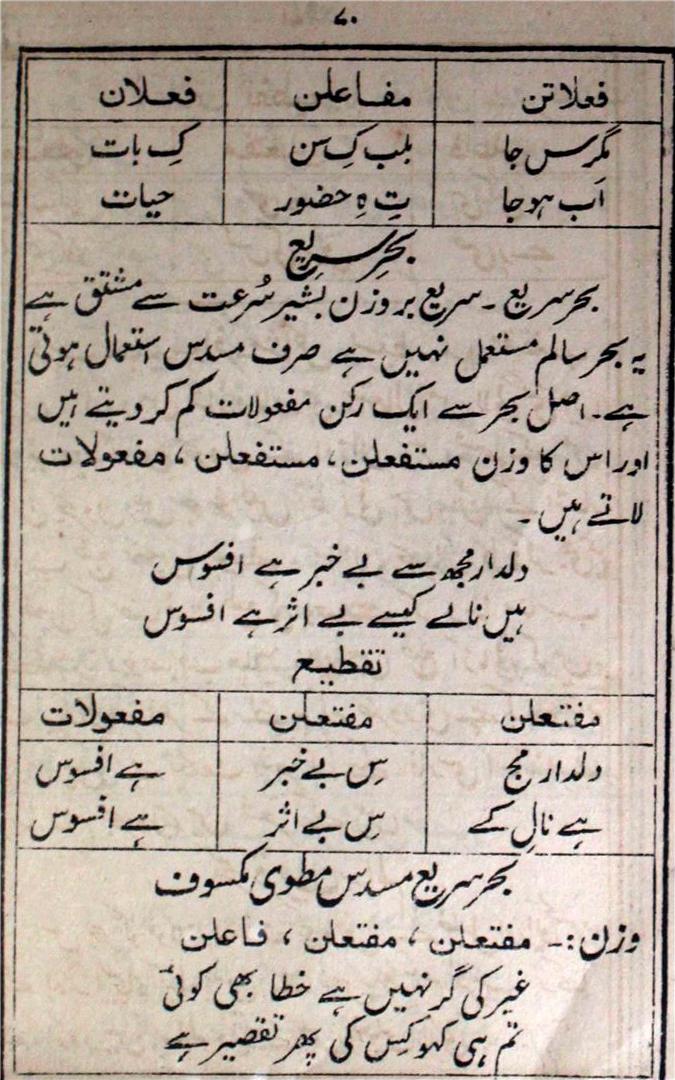 ۷۰
فعلاتن مفاعلن فعلان
مگرس جا بلب کِ سن کِ بات
اَب ہوجا تِ ہِ حضور حیات
بحرِ سریع
بحر سریع ۔ سریع بر وزن بشیر سُرعت سے مشتق ہے
یہ بحر سالم مستعمل نہیں ہے صرف مسدس استعمال ہوتی
ہے ۔ اصل بحر سے ایک رکن مفعولات کم کر دیتے ہیں
اور اس کا وزن مستفعلن ، مستفعلن ، مفعولات
لاتے ہیں ۔
دلدار مجھ سے بے خبر ہے افسوس
ہیں نالے کیسے بے اثر ہے افسوس
تقطیع
مفتعلن مفتعلن مفعولات
دلدار مج سِ بے خبر ہے افسوس
ہے نالِ کے سِ بے اثر ہے افسوس
بحر سریع مسدس مطوی مکسوف
وزن :- مفتعلن ، مفتعلن ، فاعلن
غیر کی گر نہیں ہے خطا بھی کوئی
تم ہی کہو کِس کی پھر تقصیر ہے